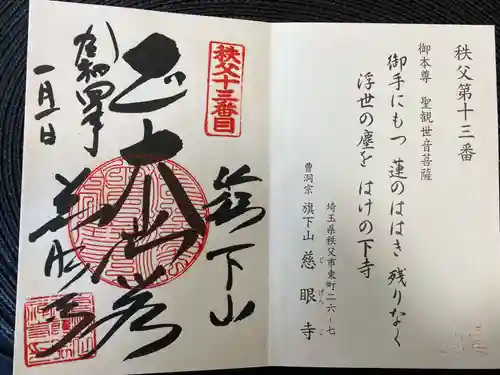 秩父第十三番
御本尊 聖観世音菩薩
御手にもつ 蓮のははき 残りなく
浮世の塵を はけの下寺
埼玉県秩父市東町二六ー七
曹洞宗 旗下山 慈眼寺
じげんじ
秩父十三番目
旗下山
慈眼寺
令和四年
一月一日